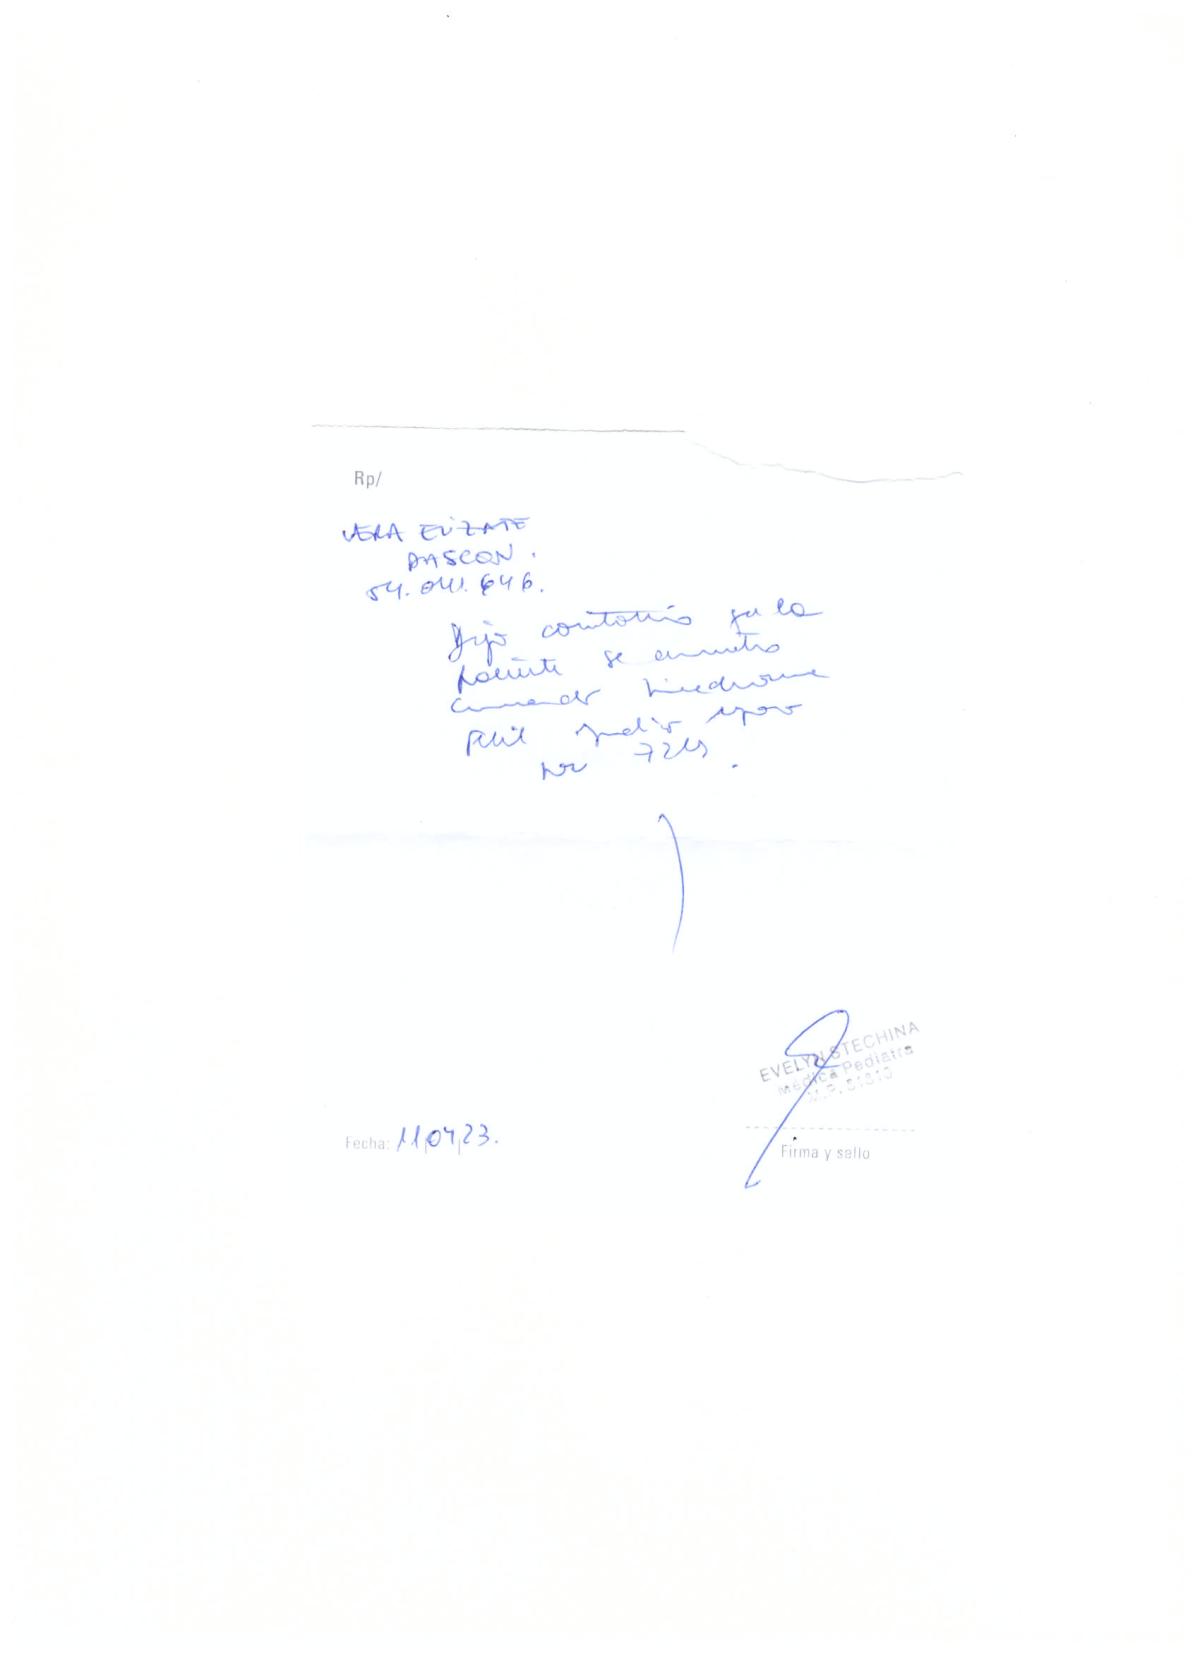 Rp/
VERA ELIZATE
PASCON.
54.041.646.
Dejo constancia que la
paciente se encuentra
cursando sindrome
febril indico reposo
por 72hs.
EVELYN STECHINA
Médica Pediatra
M.P.
Fecha: 11/04/23.
Firma y sello